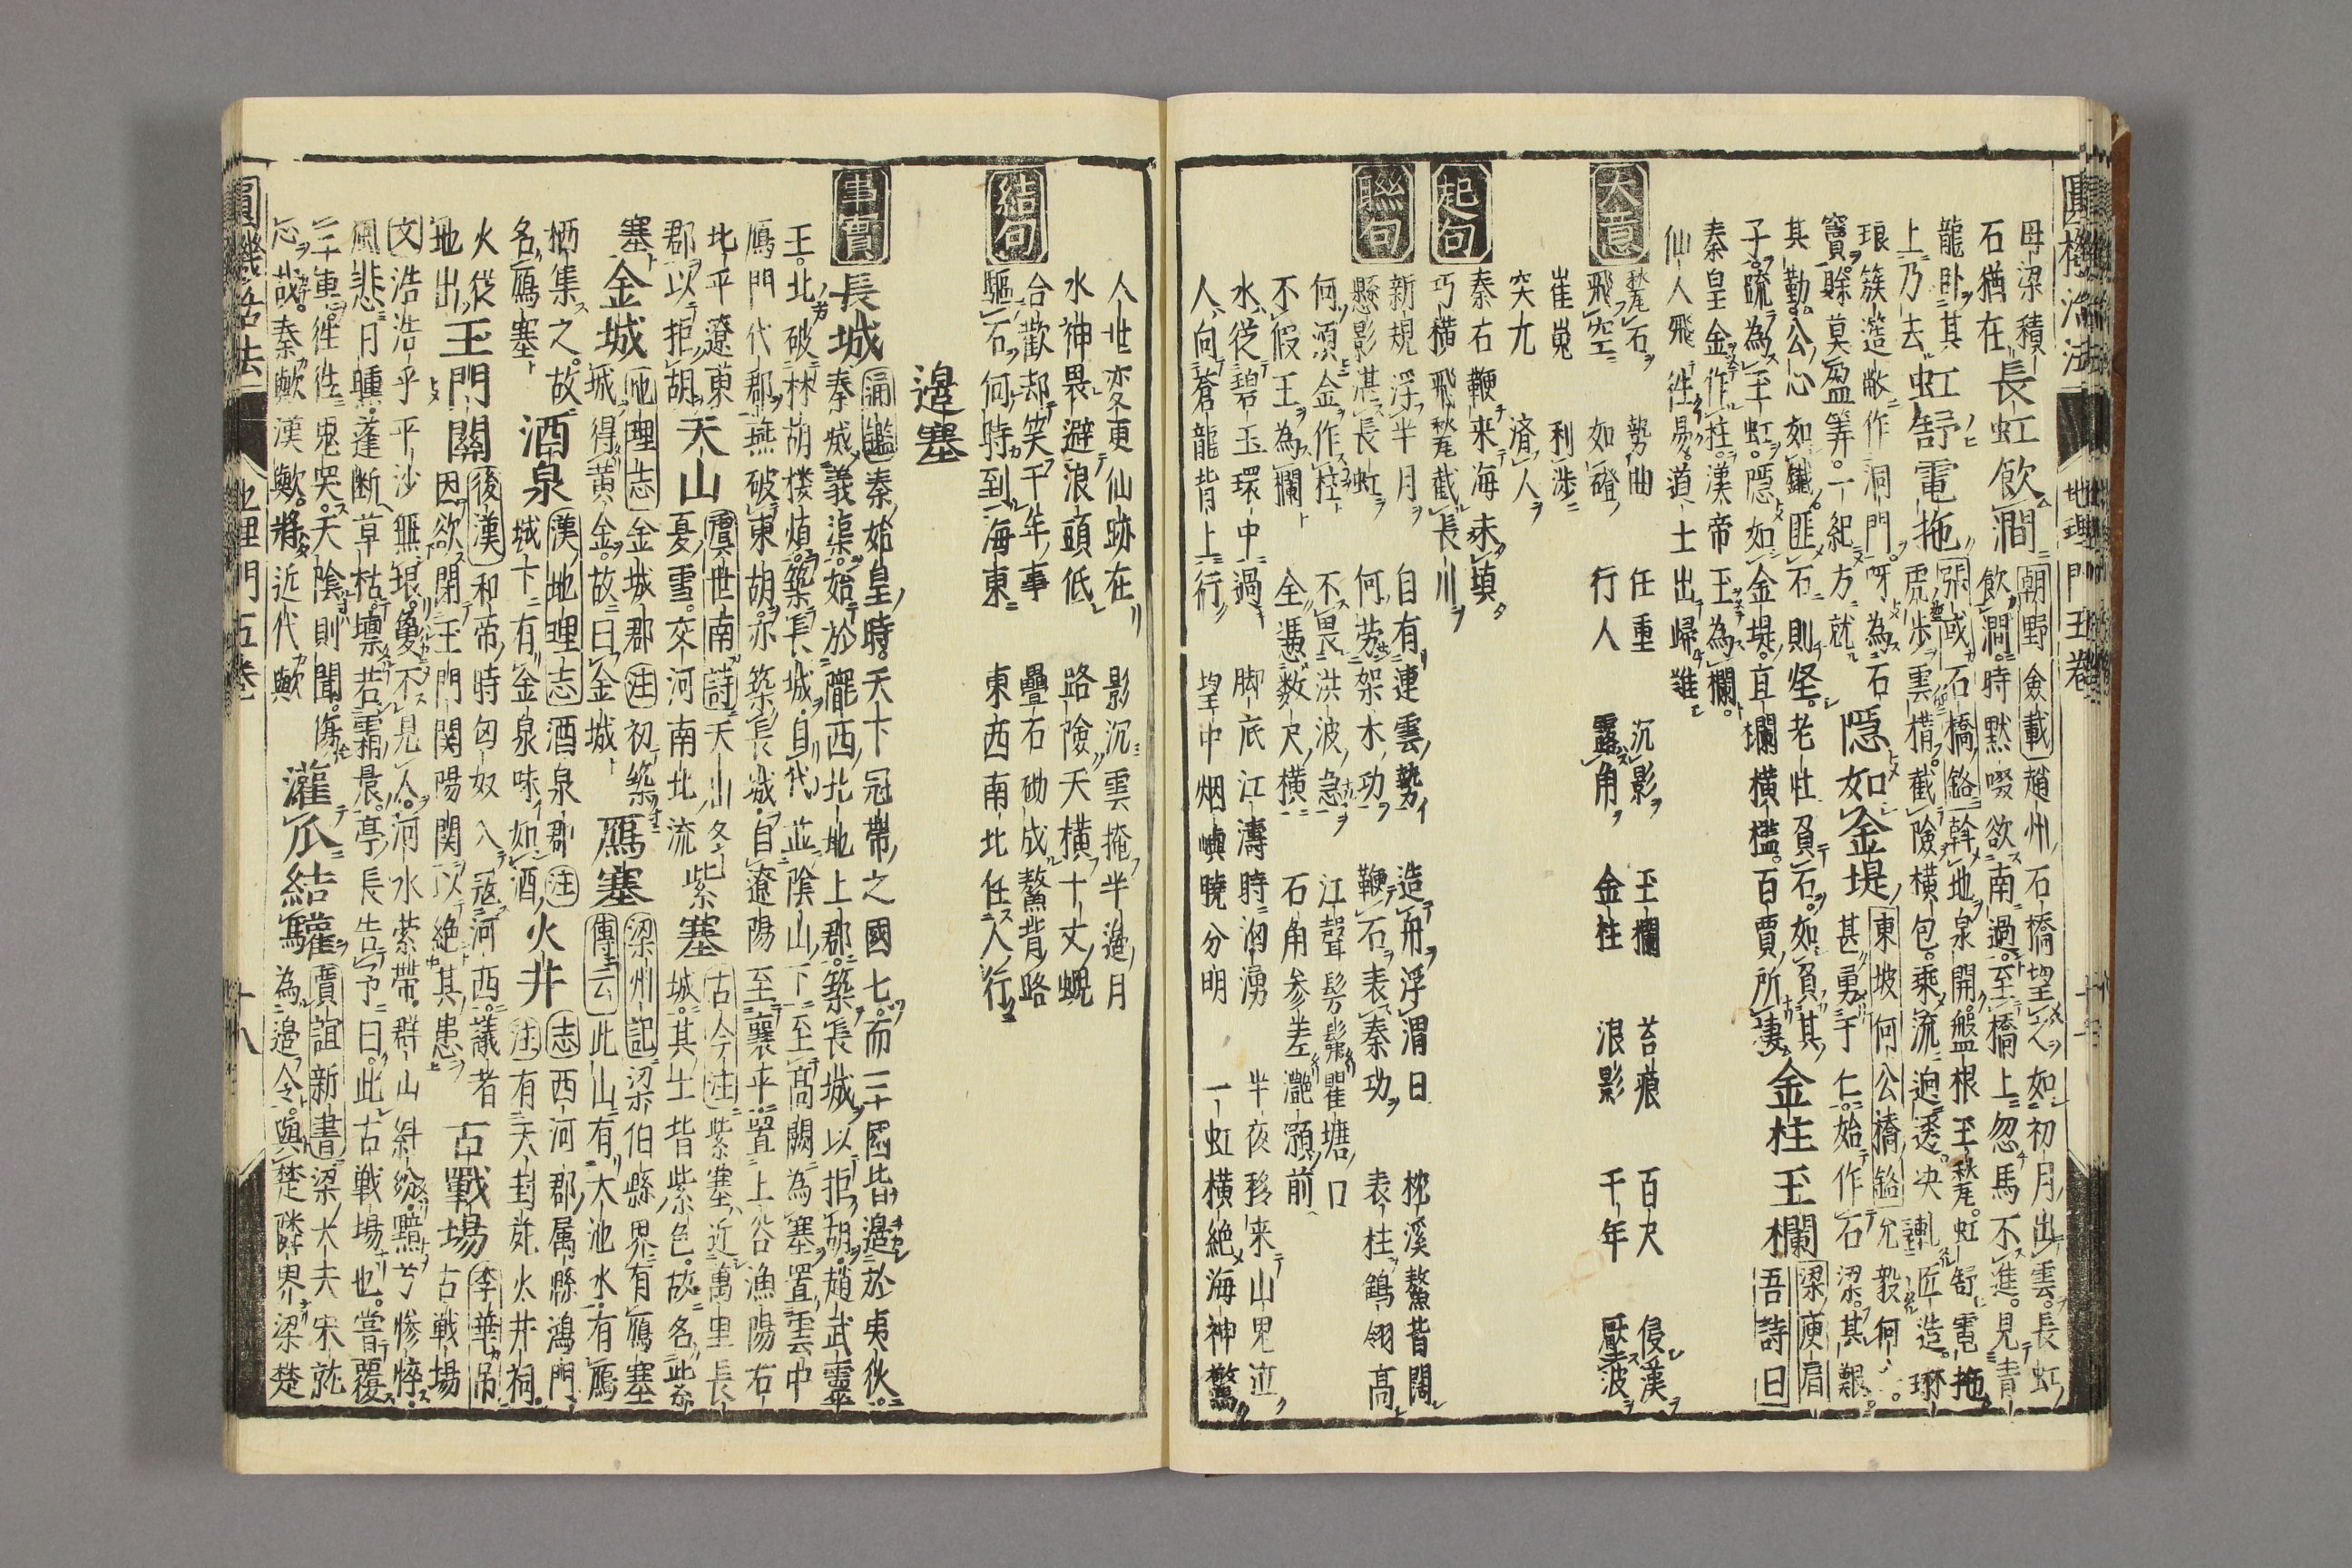 圓機活法 地理門五卷
毋梁積石猶在長虹飲澗朝野僉載趙州石橋望之如初月出雲長虹
飲澗時默啜欲南過至橋上忽馬不進見青
龍卧其上乃去虹舒電拖張或石橋銘斡地泉開盤根玉甃虹舒電拖
虎步雲構截險橫包乘流迥透决軋匠造琳
琅簇簉敞作洞門呀為石竇賖莫盈筭一紀方就隱如金堤東坡何公橋銘允毅何公
甚勇于仁始作石梁其艱
其勤公心如鐵匪石則堅老壮負石如負其
子疏為玉虹隱如金堤直欄橫檻百賈所凄金柱玉欄梁庾肩吾詩曰
秦皇金作柱漢帝玉為欄
仙人飛往易道士出歸難
大意
甃石 勢曲 任重 沉影 玉欄 苔痕 百尺 侵漢
飛空 如磴 行人 露角 金柱 浪影 千年 壓波
崔嵬 利涉
突兀 濟人
起句
秦右鞭来海未填
巧橫飛甃截長川
聯句
新規浮半月 自有連雲勢 造舟浮渭日 枕溪鰲背闊
懸影湛長虹 何勞架木功 鞭石表秦功 表柱鶴翎高
何須金作柱 不畏洪波急 江聲髣髴瞿塘口
不假玉為欄 全憑数尺橫 石角参差灔澦前
水從碧玉環中過 脚底江濤時洶湧 半夜移来山鬼泣
人向蒼龍背上行 望中烟嶼曉分明 一虹橫絶海神驚
結句
人世変更仙跡在 影沉雲掩半邉月
水神畏避浪頭低 路險天橫十丈蜺
合歡却笑千年事 疊石砌成鰲背路
驅石何時到海東 東西南北任人行
邉塞
事實
長城通鑑秦始皇時天下冠帶之國七而三國皆邉於夷狄
秦烕義渠始於隴西北地上郡築長城以拒胡趙武靈
王北破林胡楼煩築長城自代並隂山下至高闕為塞置雲中
鴈門代郡燕破東胡亦築長城自遼陽至襄平置上谷漁陽右
北平遼東郡以拒胡天山虞世南詩天山冬
夏雪交河南北流紫塞古今注紫塞近萬里長
城其土皆紫色故名此為
塞金城地理志金城郡注初築
城得黄金故曰金城鴈塞梁州記梁伯縣界有鴈塞
傳云此山有大池水有鴈
栖集之故名鴈塞酒泉漢地理志酒泉郡注
城下有金泉味如酒火井志西河郡属縣鴻門
注有天封苑火井祠
火從地出玉門關後漢和帝時匈奴入冦河西議者
因欲閉玉門関陽関以絶其患古戰場李華弔
古戦場
文浩浩乎平沙無垠敻不見人河水萦帶群山糾紛黯兮惨悴
風悲日曛蓬断草枯凛若霜晨亭長告予曰此古戦場也嘗覆
三軍往往鬼哭天隂則聞傷心哉秦歟漢歟將近代歟灌瓜結驩賈誼新書梁大夫宋就
為邉令與楚隣界梁楚
圓機活法 地理門五卷 十八